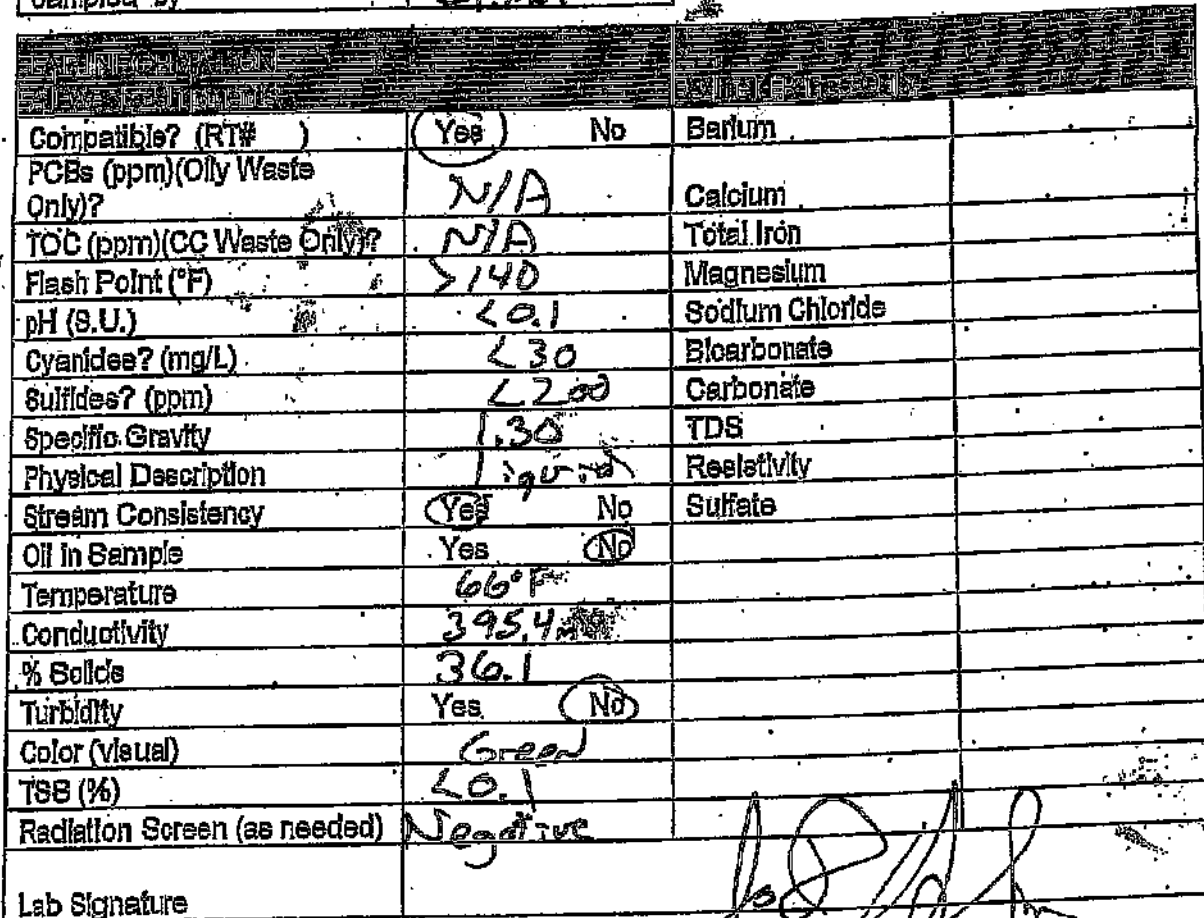 Sampled by
LAB INFORMATION
Compatible? (RT# ) Yes No Barium
PCBs (ppm)(Oily Waste
Only)? N/A Calcium
TOC (ppm)(CC Waste Only)? N/A Total Iron
Flash Point (°F) >140 Magnesium
pH (S.U.) <0.1 Sodium Chloride
Cyanides? (mg/L) <30 Bicarbonate
Sulfides? (ppm) <200 Carbonate
Specific Gravity 1.30 TDS
Physical Description liquid Resistivity
Stream Consistency Yes No Sulfate
Oil in Sample Yes No
Temperature 66°F
Conductivity 395.4
% Solids 36.1
Turbidity Yes No
Color (visual) Green
TSS (%) <0.1
Radiation Screen (as needed) Negative
Lab Signature